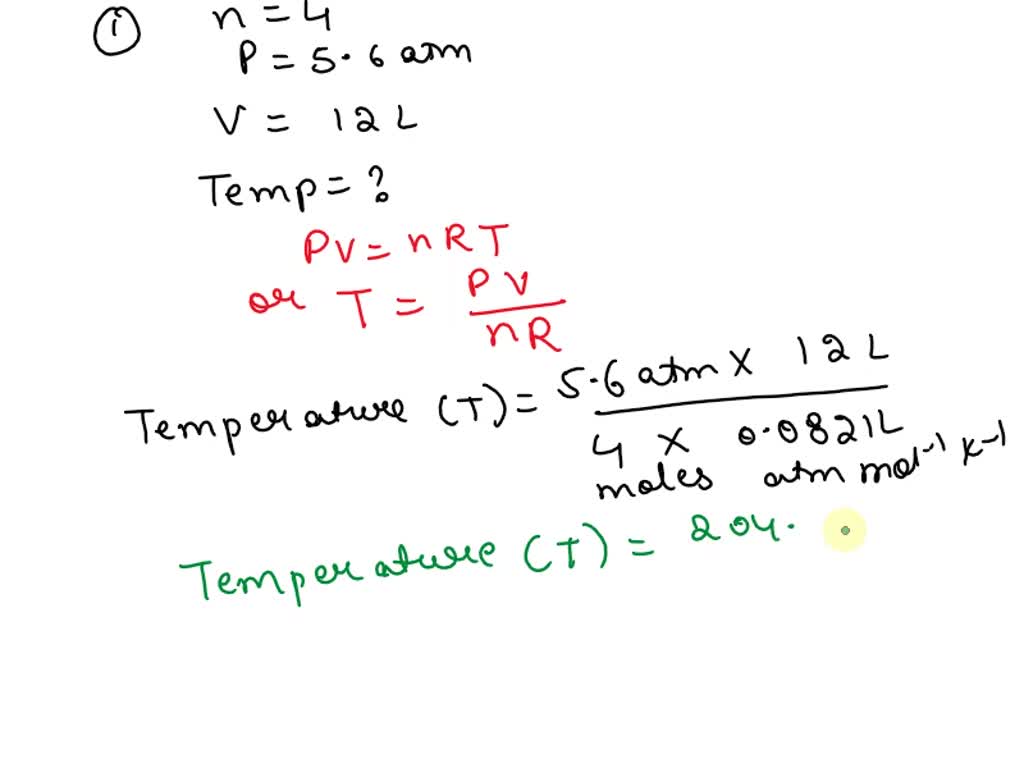 ① n = 4
P = 5.6 atm
V = 12 L
Temp = ?
PV = nRT
or T = PV / nR
Temperature (T) = 5.6 atm x 12 L / 4 moles x 0.0821 L atm mol⁻¹ K⁻¹
Temperature (T) = 204.